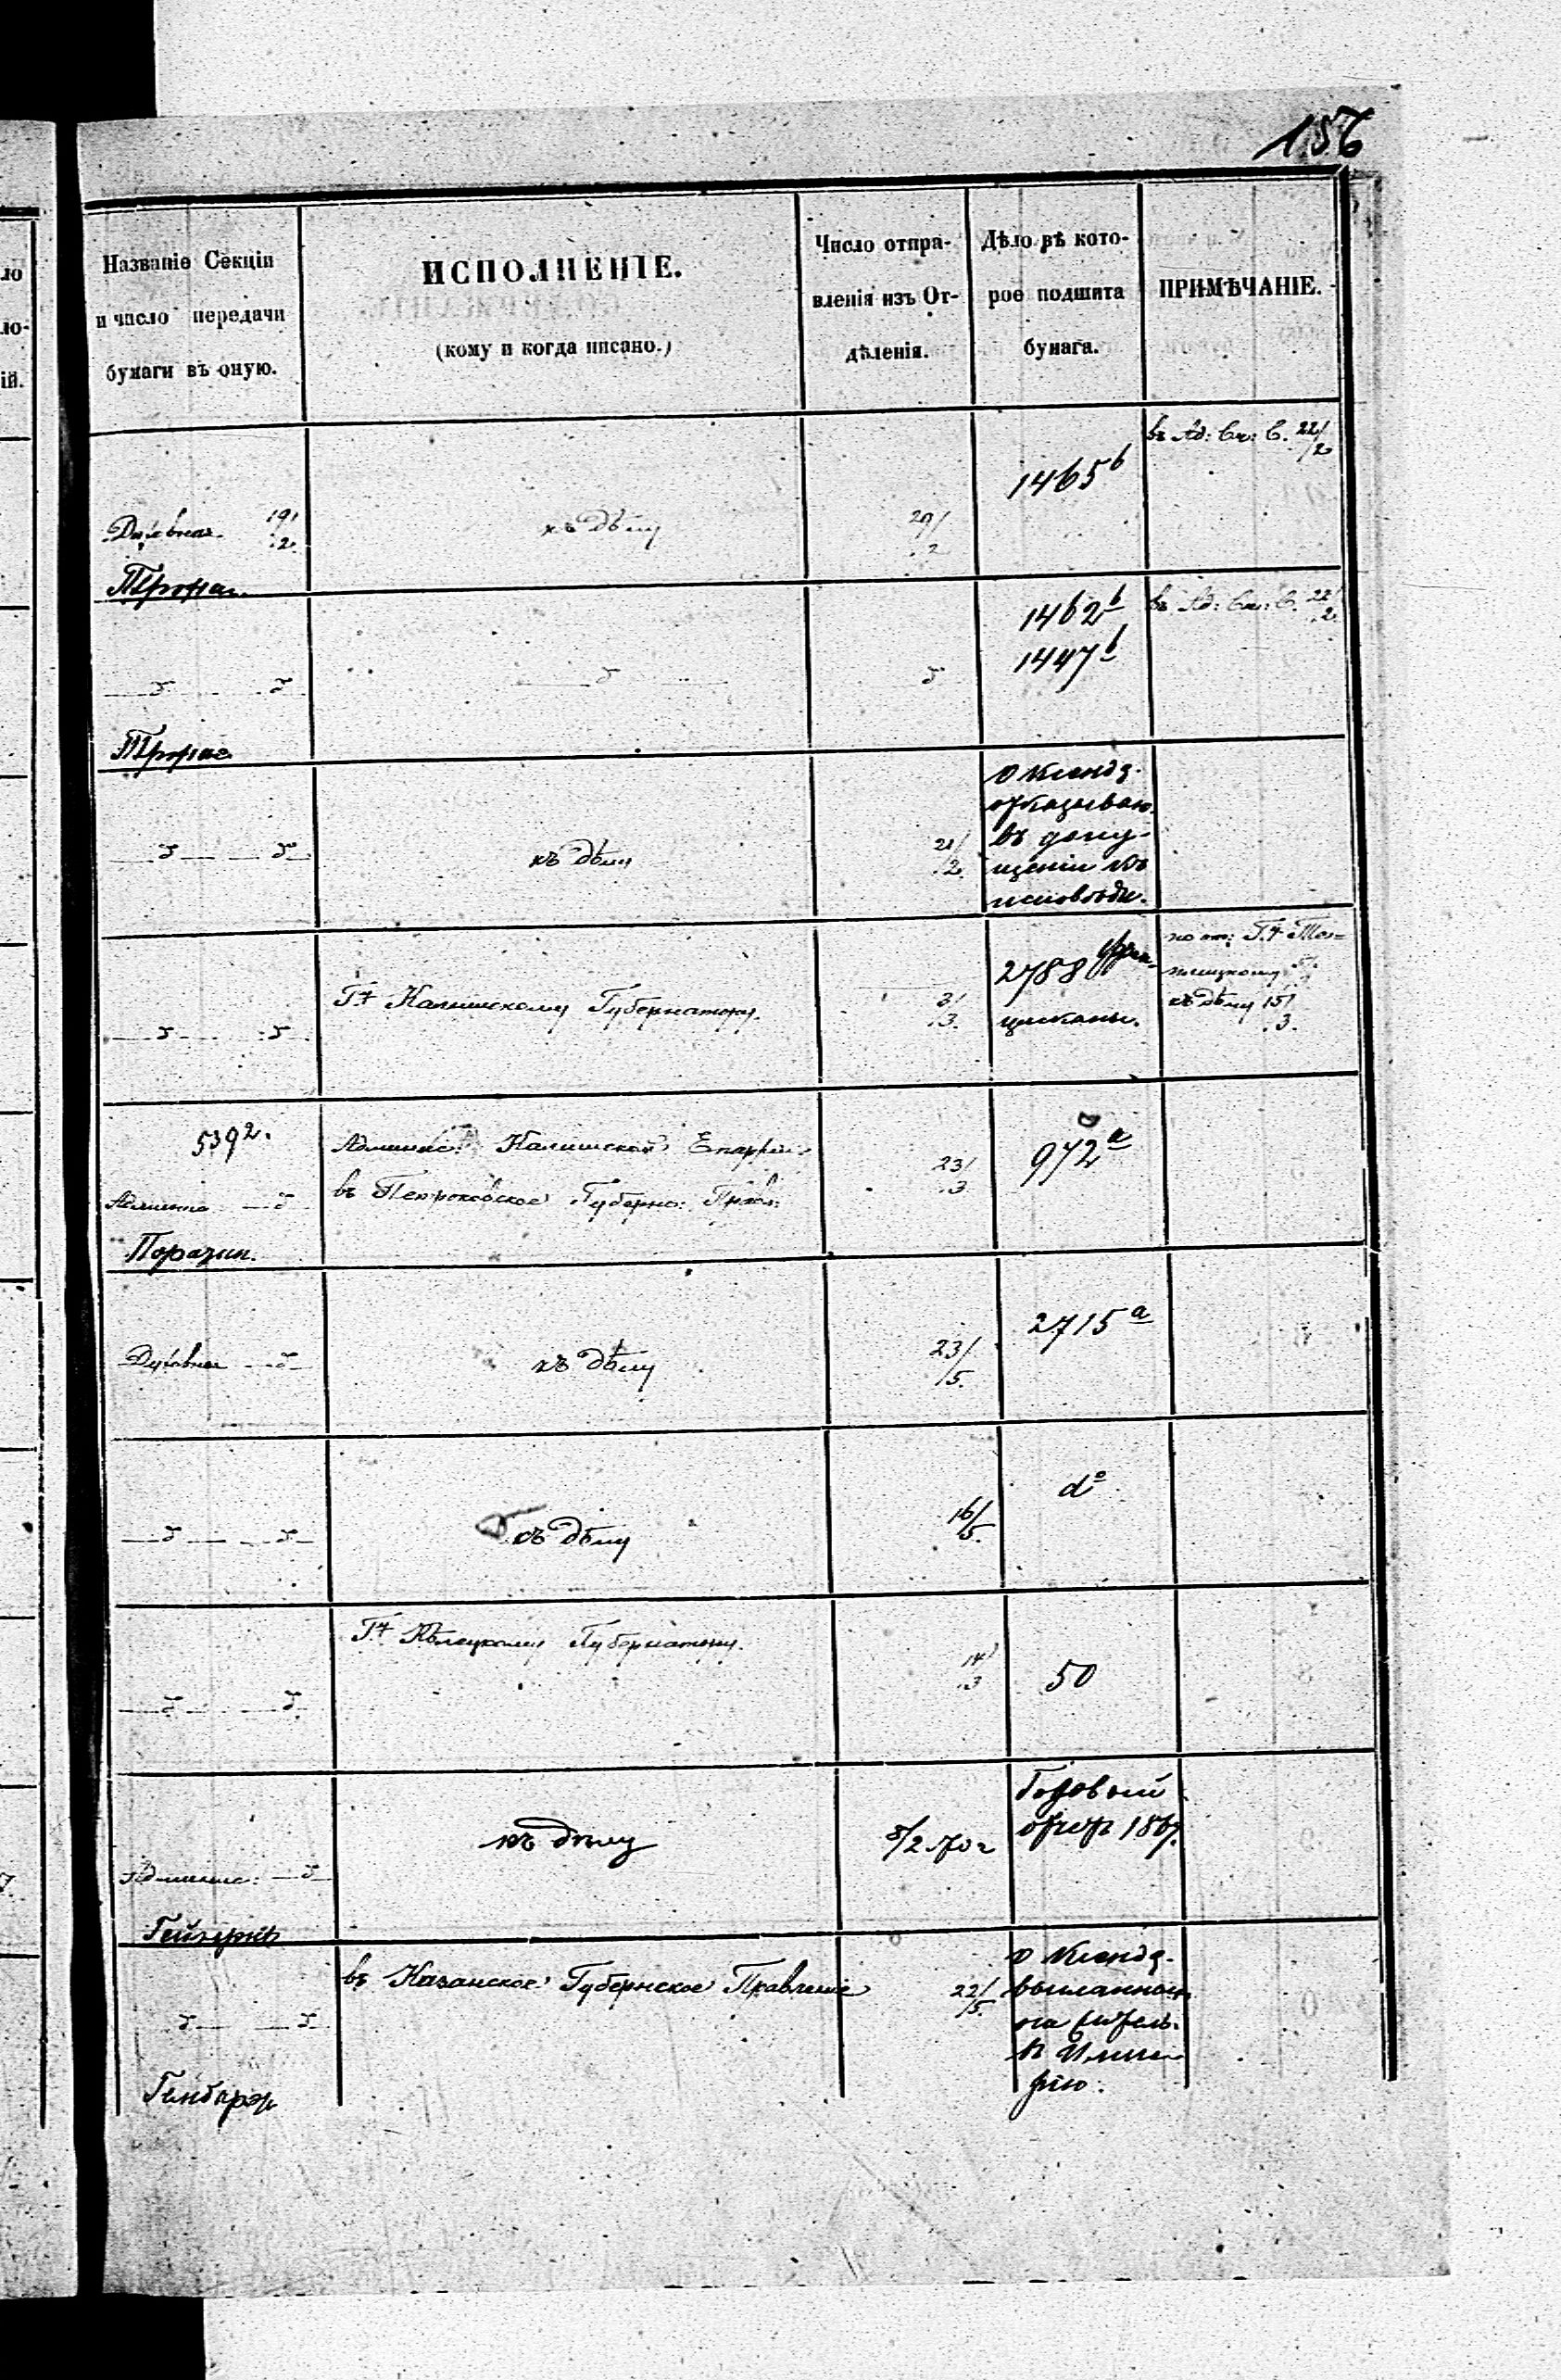 156
Названіе Секціи
и число передачи
бумаги въ оную.
ИСПОЛНЕНІЕ.
(кому и когда писано.)
Число отпра-
вленія изъ От-
дѣленія.
Дѣло въ кото-
рое подшита
бумага.
ПРИМѢЧАНІЕ.
Духовная 19/2
къ дѣлу
20/2
1465 b
въ Ад: Сч: С. 22/2
1462 b
1447 b
въ Ад: Сч: С. 22/2
къ дѣлу
21/2
о ксендз.
отказываю.
въ допу-
щеніи къ
исповѣди.
Гну Калишскому Губернатору.
3/3.
2788 фран-
цискане.
къ дѣлу 15/3.
5392.
Админис:
Админис: Калишской Епархіи
въ Петроковское Губерн: Правл:
23/3
972 a
Духовная
къ дѣлу
23/5.
2715 a
къ дѣлу
16/5.
dо
Гну Кѣлецкому Губернатору.
14/3
50
Админис:
къ дѣлу
8/2 870 г
Годовый
отчетъ 1869.
въ Казанское Губернское Правленіе
22/5.
о ксендз.
высланном
на жител.
въ Импе
рію.